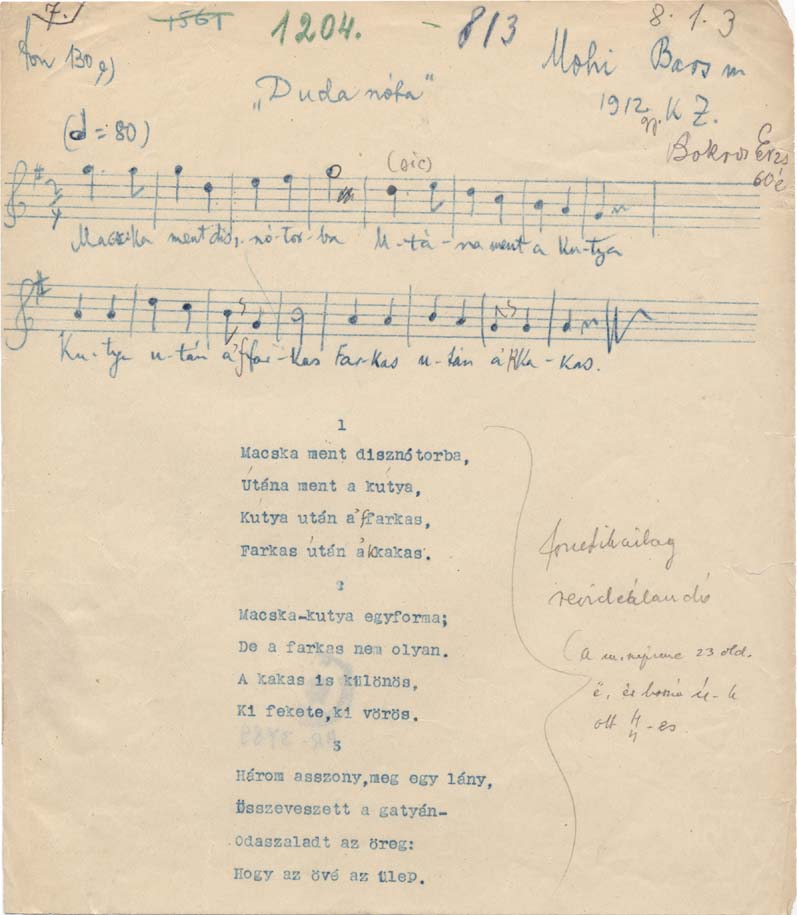 7.
1561
1204. - 813
8. 1. 3
fon 130 e)
Mohi Bars m
„Duda nóta"
1912. K Z.
(♩ = 80)
Bokros Erzs
60 é
(sic)
Macska ment disz-nó-tor-ba U-tá-na ment a Ku-tya
Ku-tya u-tán a' ffar-kas Far-kas u-tán a' kka-kas.
1
Macska mënt disznótorba,
Utána ment a kutya,
Kutya után a'ffarkas,
Farkas után a'kkakas.
2
Macska-kutya egyforma;
De a farkas nem olyan.
A kakas is különös,
Ki fekete,ki vörös.
3
Három asszony,meg egy lány,
Összeveszett a gatyán-
Odaszaladt az öreg:
Hogy az övé az ülep.
fonetikailag
revideálandó
(a m. népzene 23 old.
ott 4/4-es